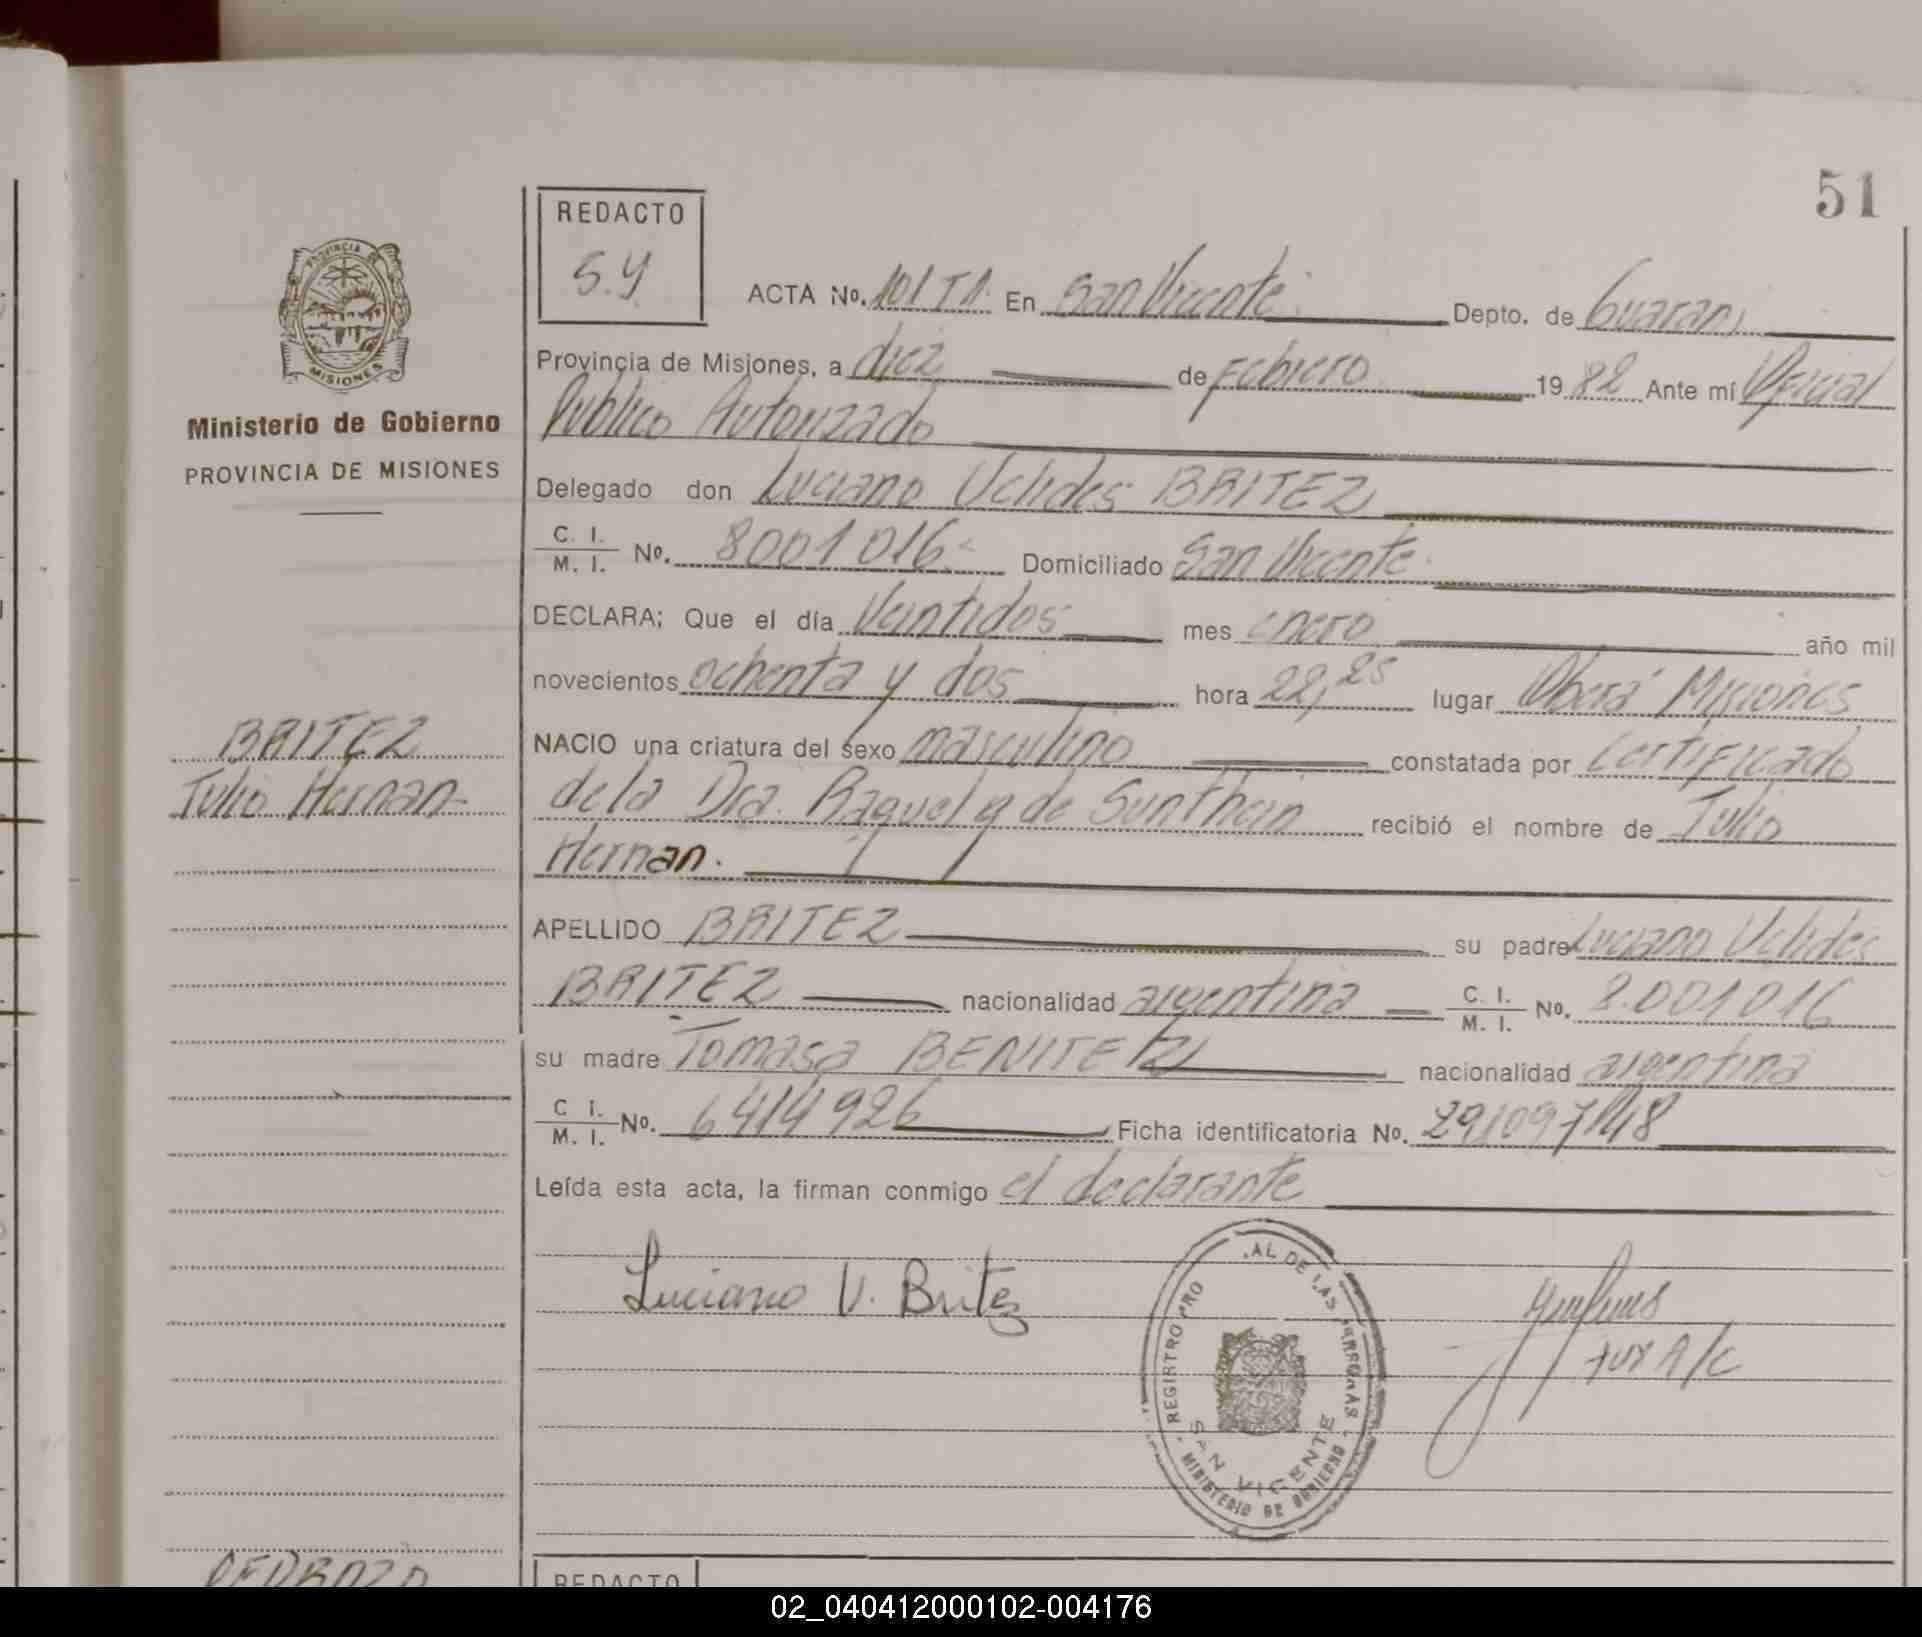 51
REDACTO
S.Y.
ACTA No. 101 T1. En San Vicente Depto. de Guarani
Provincia de Misiones, a diez de Febrero 1982 Ante mí Oficial
Publico Autorizado
Delegado don Luciano Uclides BRITEZ
C. I.
M. I. No. 8001016 Domiciliado San Vicente
DECLARA; Que el día Veintidos mes enero año mil
novecientos ochenta y dos hora 22,25 lugar Oberá Misiones
NACIO una criatura del sexo masculino constatada por Certificado
de la Dra. Raquel g de Sunthein recibió el nombre de Julio
Hernan.
APELLIDO BRITEZ su padre Luciano Uclides
BRITEZ nacionalidad argentina C. I. M. I. No. 8.001016
su madre Tomasa BENITEZ nacionalidad argentina
C I. M. I. No. 6414926 Ficha identificatoria No.
Leída esta acta, la firman conmigo el declarante
Luciano U. Britez
A/C
PROVINCIA DE
MISIONES
Ministerio de Gobierno
PROVINCIA DE MISIONES
BRITEZ
Julio Hernan
REGISTRO PRO AL DE LAS
SAN VICENTE
MINISTERIO DE GOBIERNO
PEDROZO
REDACTO
02_040412000102-004176